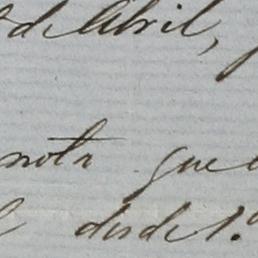 de Abril,
nota que
desde 1.º